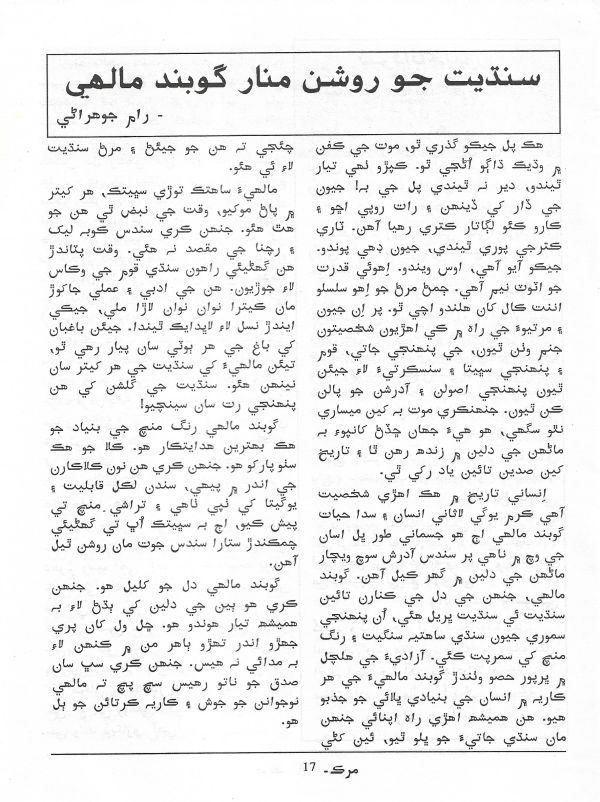 سنڌيت جو روشن منار گوبند مالهي
- رام جوهراڻي
هڪ پل جيڪو گذري ٿو، موت جي ڪفن
۾ وڌيڪ ڌاڳو اُڻجي ٿو. ڪپڙو ٺهي تيار
ٿيندو، دير نہ ٿيندي پل جي بہ! جيون
جي ڏار کي ڏينهن ۽ رات روپي اڇو ۽
ڪارو ڪئو لڳاتار ڪتري رهيا آهن. ٽاري
ڪترجي پوري ٿيندي، جيون ڊهي پوندو.
جيڪو آيو آهي، اوس ويندو. اِهوئي قدرت
جو اٽوٽ نيم آهي. ڄمڻ مرڻ جو اِهو سلسلو
اننت ڪال کان هلندو اچي ٿو. پر اِن جيون
۽ مرتيوءَ جي راهہ ۾ ڪي اهڙيون شخصيتون
جنم وٺن ٿيون، جي پنهنجي جاتي، قوم
۽ پنهنجي سڀيتا ۽ سنسڪرتيءَ لاءِ جيئن
ٿيون پنهنجي اصولن ۽ آدرشن جو پالن
ڪن ٿيون. جنهنڪري موت بہ کين ميساري
نٿو سگهي، هو هيءُ جهان ڇڏڻ کانپوءِ بہ
ماڻهن جي دلين ۾ زندهہ رهن ٿا ۽ تاريخ
کين صدين تائين ياد رکي ٿي.
اِنساني تاريخ ۾ هڪ اهڙي شخصيت
آهي ڪرم يوگي لاثاني انسان ۽ سدا حيات
گوبند مالهي اڄ هو جسماني طور ڀل اسان
جي وچ ۾ ناهي پر سندس آدرش سوچ ويچار
ماڻهن جي دلين ۾ گهر ڪيل آهن. گوبند
مالهي، جنهن جي دل جي ڪنارن تائين
سنڌيت ئي سنڌيت ڀريل هئي، اُن پنهنجي
سموري جيون سنڌي ساهتيہ سنگيت ۽ رنگ
منچ کي سمرپت ڪئي. آزاديءَ جي هلچل
۾ ڀرپور حصو وٺندڙ گوبند مالهيءَ جي هر
ڪاريہ ۾ انسان جي بنيادي ڀلائي جو جذبو
هيو. هن هميشہ اهڙي راهہ اپنائي جنهن
مان سنڌي جاتيءَ جو ڀلو ٿيو، ئين کڻي
چئجي تہ هن جو جيئڻ ۽ مرڻ سنڌيت
لاءِ ئي هئو.
مالهيءَ ساهتڪ توڙي سڀيتڪ، هر کيتر
۾ پاڻ موکيو، وقت جي نبض ئي هن جو
هٿ هئو. جنهن ڪري سندس ڪوبہ ليک
۽ رچنا جي مقصد نہ هئي. وقت پٽاندڙ
هن گهڻيئي راهون سنڌي قوم جي وڪاس
لاءِ جوڙيون. هن جي ادبي ۽ عملي جاکوڙ
مان ڪيترا نوان نوان لاڙا ملي، جيڪي
ايندڙ نسل لاءِ لاڀدايڪ ٿيندا. جيئن باغبان
کي باغ جي هر ٻوٽي سان پيار رهي ٿو،
تيئن مالهيءَ کي سنڌيت جي هر کيتر سان
نينهن هئو. سنڌيت جي گلشن کي هن
پنهنجي رت سان سينچيو!
گوبند مالهي رنگ منچ جي بنياد جو
هڪ بهترين هدايتڪار هو. ڪلا جو هڪ
سٺو پارکو هو. جنهن ڪري هن نون ڪلاڪارن
جي اندر ۾ پيهي، سندن لڪل قابليت ۽
يوگيتا کي ٺپي ٺاهي ۽ تراشي منچ تي
پيش ڪيو، اڄ بہ سڀيتڪ اُڀ تي گهڻيئي
چمڪندڙ ستارا سندس جوت مان روشن ٿيل
آهن.
گوبند مالهي دل جو کليل هو. جنهن
ڪري هو ٻين جي دلين کي ٻڌڻ لاءِ بہ
هميشہ تيار هوندو هو. ڇل ول کان پري
جهڙو اندر تهڙو ٻاهر من ۾ ڪنهن لاءِ
بہ مدائي نہ هيس. جنهن ڪري سڀ سان
صدق جو ناتو رهيس سچ پچ تہ مالهي
نوجوانن جو جوش ۽ ڪاريہ ڪرتائن جو ٻل
هو.
مرڪ- 17